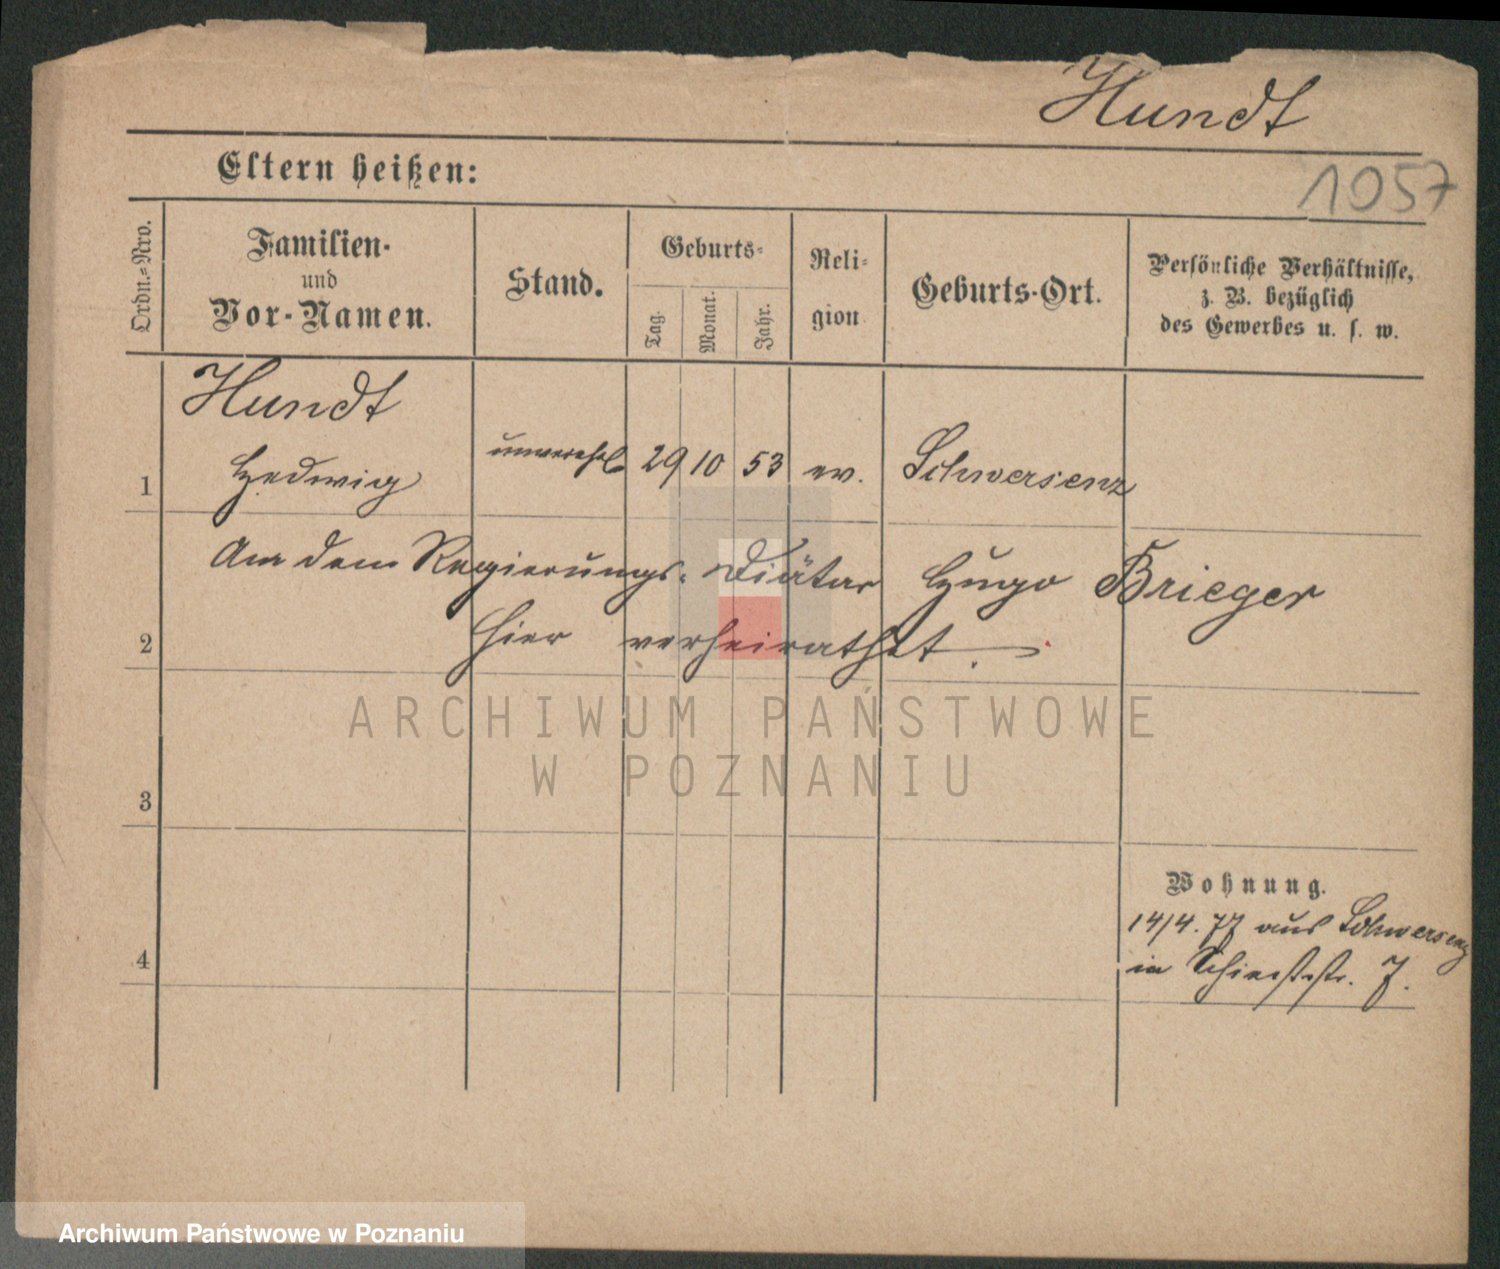 Hundt
1057
Eltern heißen:
Ordn.-Nro.
Familien-
und
Vor-Namen.
Stand.
Geburts-
Tag.
Monat.
Jahr.
Reli-
gion
Geburts-Ort.
Persönliche Verhältnisse,
z. B. bezüglich
des Gewerbes u. s. w.
Hundt
1 Hedwig unverehl 29 10 53 ev. Schwersenz
An dem Regierungs-Diätar Hugo Brieger
2 hier verheirathet.
ARCHIWUM PAŃSTWOWE
W POZNANIU
3
Wohnung.
14/4. 77 aus Schwersenz
4 in 7.
Archiwum Państwowe w Poznaniu